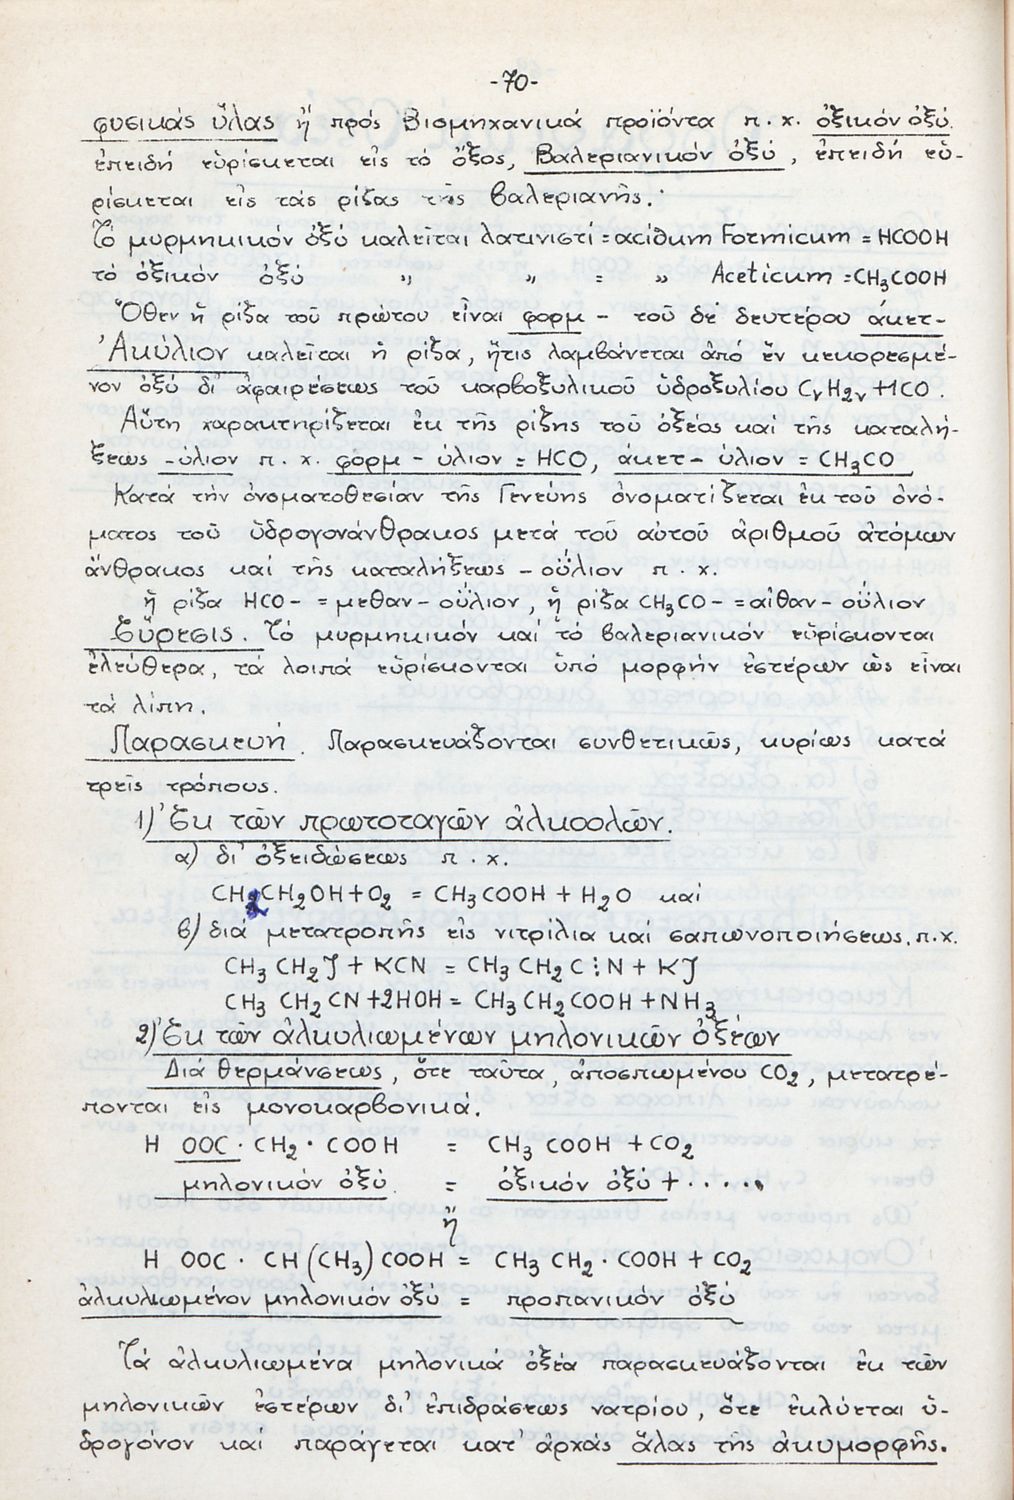 -70-
φυσικάς ὕλας ἤ πρός βιομηχανικά προϊόντα π.χ. ὀξικόν ὀξύ.
ἐπειδή εὑρίσκεται εἰς τό ὄξος, Βαλεριανικόν ὀξύ, ἐπειδή εὑ-
ρίσκεται εἰς τάς ρίζας τῆς βαλεριανῆς.
Τό μυρμηκικόν ὀξύ καλεῖται λατινιστί = acidum Formicum = HCOOH
τό ὀξικόν ὀξύ " " = " Aceticum = CH3COOH
Ὅθεν ἡ ρίζα τοῦ πρώτου εἶναι φορμ - τοῦ δέ δευτέρου ἀκετ-
Ἀκύλιον καλεῖται η ρίζα, ἥτις λαμβάνεται ἀπό ἕν κεκορεσμέ-
νον ὀξύ δι' ἀφαιρέσεως τοῦ καρβοξυλικοῦ ὑδροξυλίου CνH2ν+1CO.
Αὕτη χαρακτηρίζεται ἐκ τῆς ρίζης τοῦ ὀξέος καί τῆς καταλή-
ξεως -ύλιον π.χ. φόρμ - ύλιον = HCO, ἀκετ - ύλιον = CH3CO
Κατά τήν ὀνοματοθεσίαν τῆς Γενεύης ὀνοματίζεται ἐκ τοῦ ὀνό-
ματος τοῦ ὑδρογονάνθρακος μετά τοῦ αὐτοῦ ἀριθμοῦ ἀτόμων
ἄνθρακος καί τῆς καταλήξεως - οΰλιον π.χ.
ἡ ρίζα HCO- = μεθαν - οΰλιον, ἡ ρίζα CH3CO- = αἰθαν - οΰλιον
Εὕρεσις. Τό μυρμηκικόν καί τό βαλεριανικόν εὑρίσκονται
ἐλεύθερα, τά λοιπά εὑρίσκονται ὑπό μορφήν ἐστέρων ὡς εἶναι
τά λίπη.
Παρασκευή. Παρασκευάζονται συνθετικῶς, κυρίως κατά
τρεῖς τρόπους.
1) Ἐκ τῶν πρωτοταγῶν ἀλκοολῶν.
α) δι' ὀξειδώσεως π.χ.
CH3CH2OH+O2 = CH3COOH + H2O καί
β) διά μετατροπῆς εἰς νιτρίλια καί σαπωνοποιήσεως. π.χ.
CH3 CH2J + KCN = CH3 CH2 C⋮N + KJ
CH3 CH2 CN+2HOH = CH3 CH2 COOH + NH3
2) Ἐκ τῶν ἀλκυλιωμένων μηλονικῶν ὀξέων
Διά θερμάνσεως, ὅτε ταῦτα, ἀποσπωμένου CO2, μετατρέ-
πονται εἰς μονοκαρβονικά.
H OOC · CH2 · COOH = CH3 COOH + CO2
μηλονικόν ὀξύ = ὀξικόν ὀξύ + .....
ἤ
H OOC · CH(CH3) COOH = CH3 CH2 · COOH + CO2
ἀλκυλιωμένον μηλονικόν ὀξύ = προπανικόν ὀξύ
Τά ἀλκυλιωμένα μηλονικά ὀξέα παρασκευάζονται ἐκ τῶν
μηλονικῶν ἐστέρων δι' ἐπιδράσεως νατρίου, ὅτε ἐκλύεται ὑ-
δρογόνον καί παράγεται κατ' ἀρχάς ἅλας τῆς ἀκυμορφῆς.